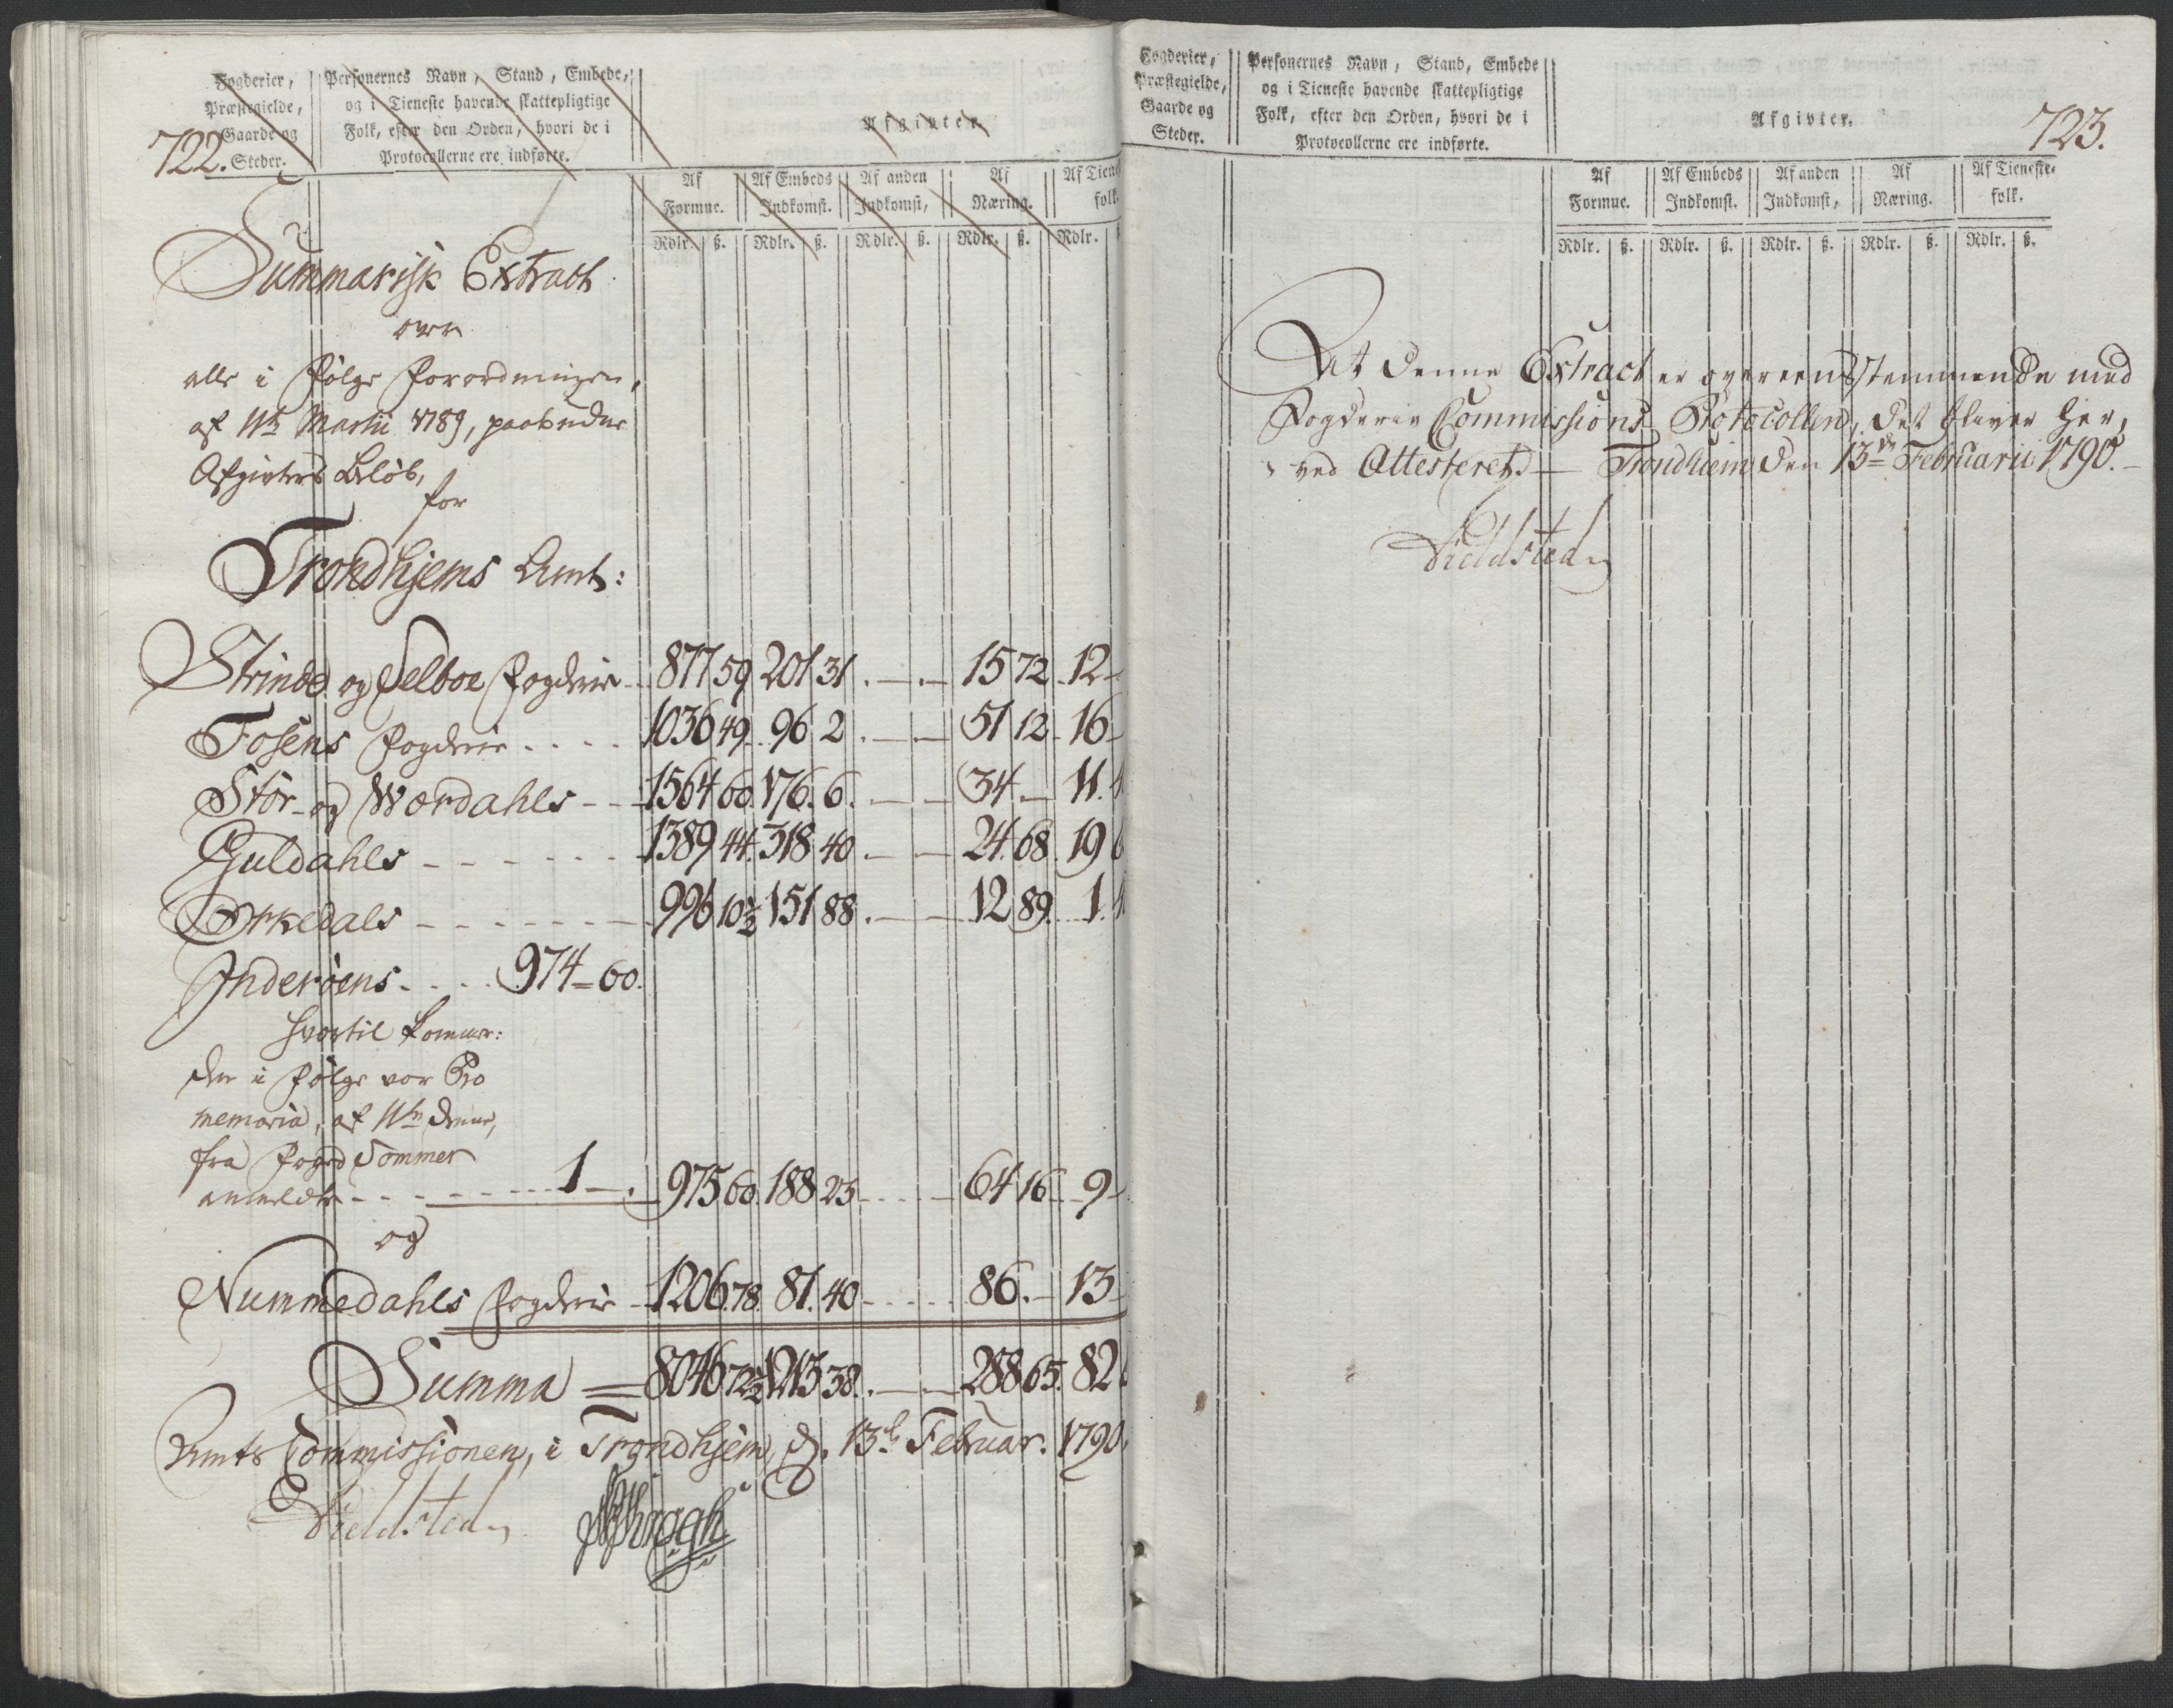 722.
Fogderier,
Præstegielde,
Gaarde og
Steder.
Personernes Navn, Stand, Embede,
og i Tieneste havende skattepligtige
Folk, efter den Orden, hvori de i
Protocollerne ere indførte.
Afgivter.
Af Formue. Af Embeds Indkomst. Af anden Indkomst, Af Næring. Af Tiene folk
Rdlr. ß. Rdlr. ß. Rdlr. ß. Rdlr. ß. Rdlr.
Summarisk Extract
over
alle i følge Forordningen,
af 11te Martii 1789, paabudne
Afgivters Beløb,
for
Trondhjems Amt:
Strinde og Selboe Fogderie 877 59 201 31 . — . — 15 72 12 -
Fosens Fogderie . . . . 1036 49 96 2 . — — 51 12 16 -
Stør- og Wærdahls - - 1564 60 176 6 . — — 34 . — 11.
Guldahls - - - - - - 1389 44 318 40 . — — 24 68 19
Orkedals - - - - - - 996 10½ 151 88 . — — 12 89 1.
Inderøens . . . . 974 - 60.
hvortil kommer:
den i følge vor Pro
memoria, af 11te denne,
fra Foged Sommer
anmeldte - - - - - - 1 — . 975 60 188 23 - - - - 64 16 9 -
og
Nummedahls Fogderie - 1206 78 81 40 - . . . . 86. — 13 -
Summa = 8046 72½ 1213 38 . — . — 288 65 82
Amts Commissionen, i Trondhjem, d. 13de Februar. 1790.
Vieldsted
723.
Fogderier,
Præstegielde,
Gaarde og
Steder.
Personernes Navn, Stand, Embede
og i Tieneste havende skattepligtige
Folk, efter den Orden, hvori de i
Protocollerne ere indførte.
Afgivter.
Af Formue. Af Embeds Indkomst. Af anden Indkomst, Af Næring. Af Tieneste- folk.
Rdlr. ß. Rdlr. ß. Rdlr. ß. Rdlr. ß. Rdlr. ß.
At denne Extract er overeensstemmende med
Fogderie Commissions Protocollen, det bliver her,
ved Attesteret. — Trondhiem den 13de Februarii 1790. -
Vieldsted